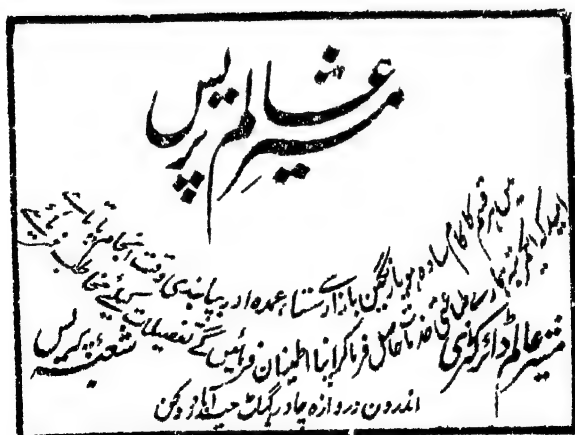 مشیر عالم پریس
میں ہر قسم کا کام سادہ ہو یا رنگین بازار سے سستا عمدہ اور بپابندی وقت انجام پاتا ہے
امید کہ ایک مرتبہ ہمارے طباعتی خدمات حاصل فرما کر اپنا اطمینان فرمائیں گے تفصیلات کیلئے مخاطب فرمائیے
مشیر عالم ڈائرکٹری شعبہ پریس
اندرون دروازہ چادر گھاٹ حیدرآباد دکن